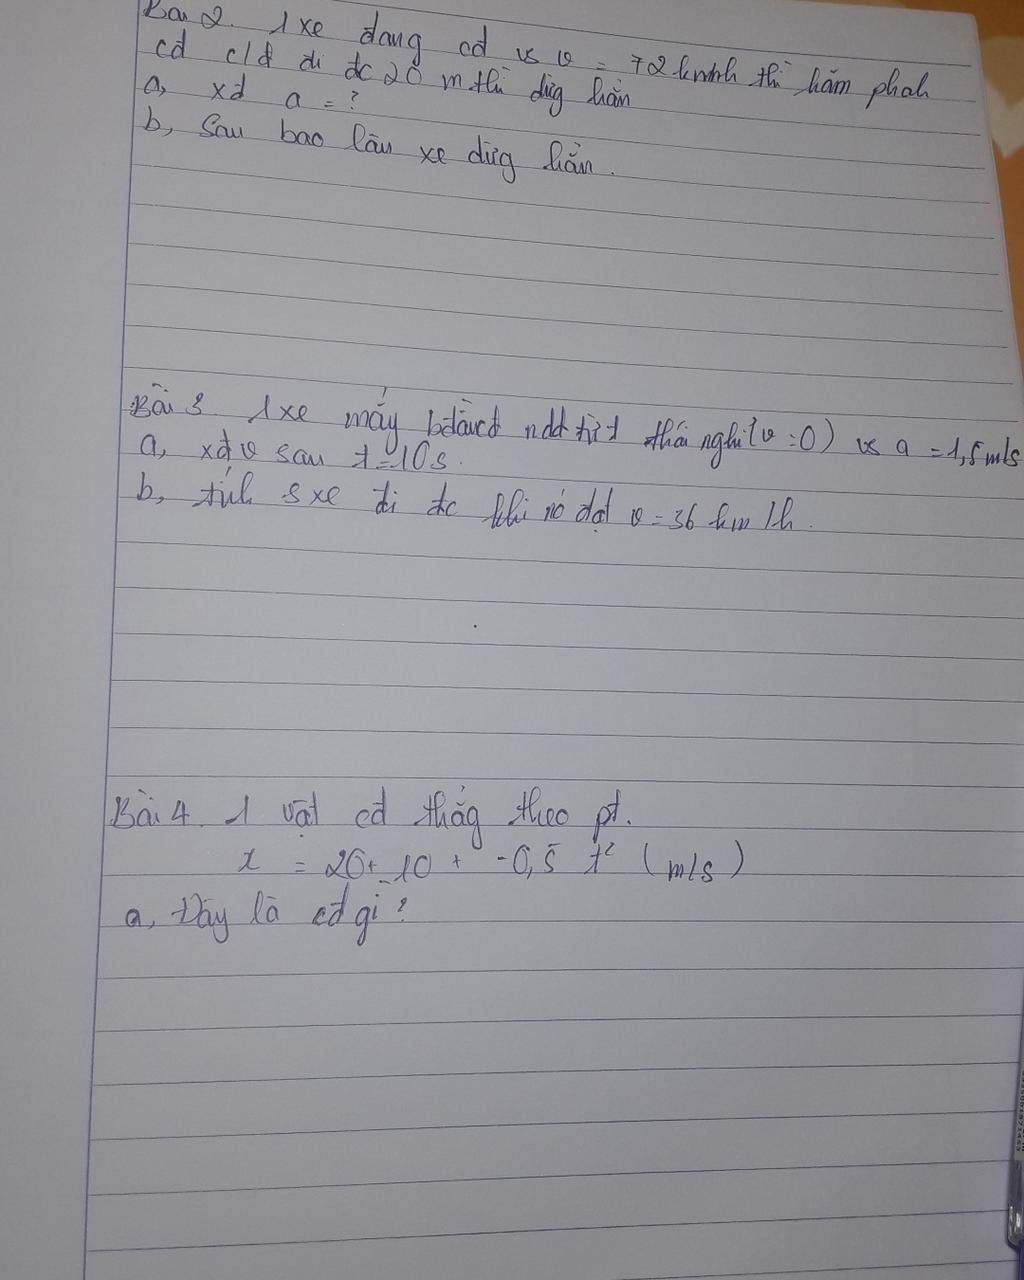 Bài 2. 1 xe đang cđ vs v = 72 km/h thì hãm phah
cđ c/đ đi đc 20 m thì dừg hẳn
a, xđ a = ?
b, Sau bao lâu xe dừg hẳn.
Bài 3. 1 xe máy bđầu cđ ndđ từ t thái nghỉ (v = 0) vs a = 1,5 m/s
a, xđ v sau t = 10 s.
b, tính s xe đi đc khi nó đạt v = 36 km/h.
Bài 4. 1 vật cđ thẳg theo pt.
x = 20 + 10 t -0,5 t² (m/s)
a, Đây là cđ gì?